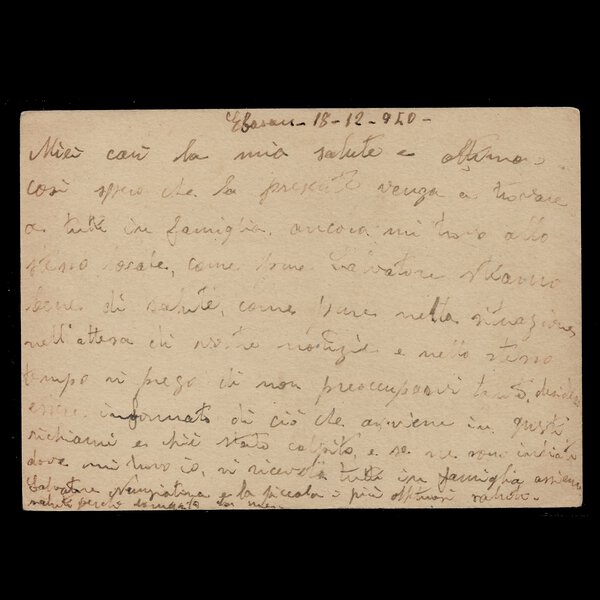 Elbasan - 18 - 12 - 940 -
Miei cari la mia salute e ottima.
così spero che la presente venga a trovare
a tutti in famiglia. ancora mi trovo allo
stesso locale, come pure Salvatore stiamo
bene di salute, come pure nella situazione,
nell'attesa di vostre notizie e nello stesso
tempo vi prego di non preoccuparvi tanto, desidero
essere informato di ciò che avviene in questi
richiami e più stato colpito, e se ne sono inviati
dove mi trovo io, vi ricevete tutti in famiglia assieme
Salvatore Nunziatina e la piccola i più affettuosi saluti.
saluti